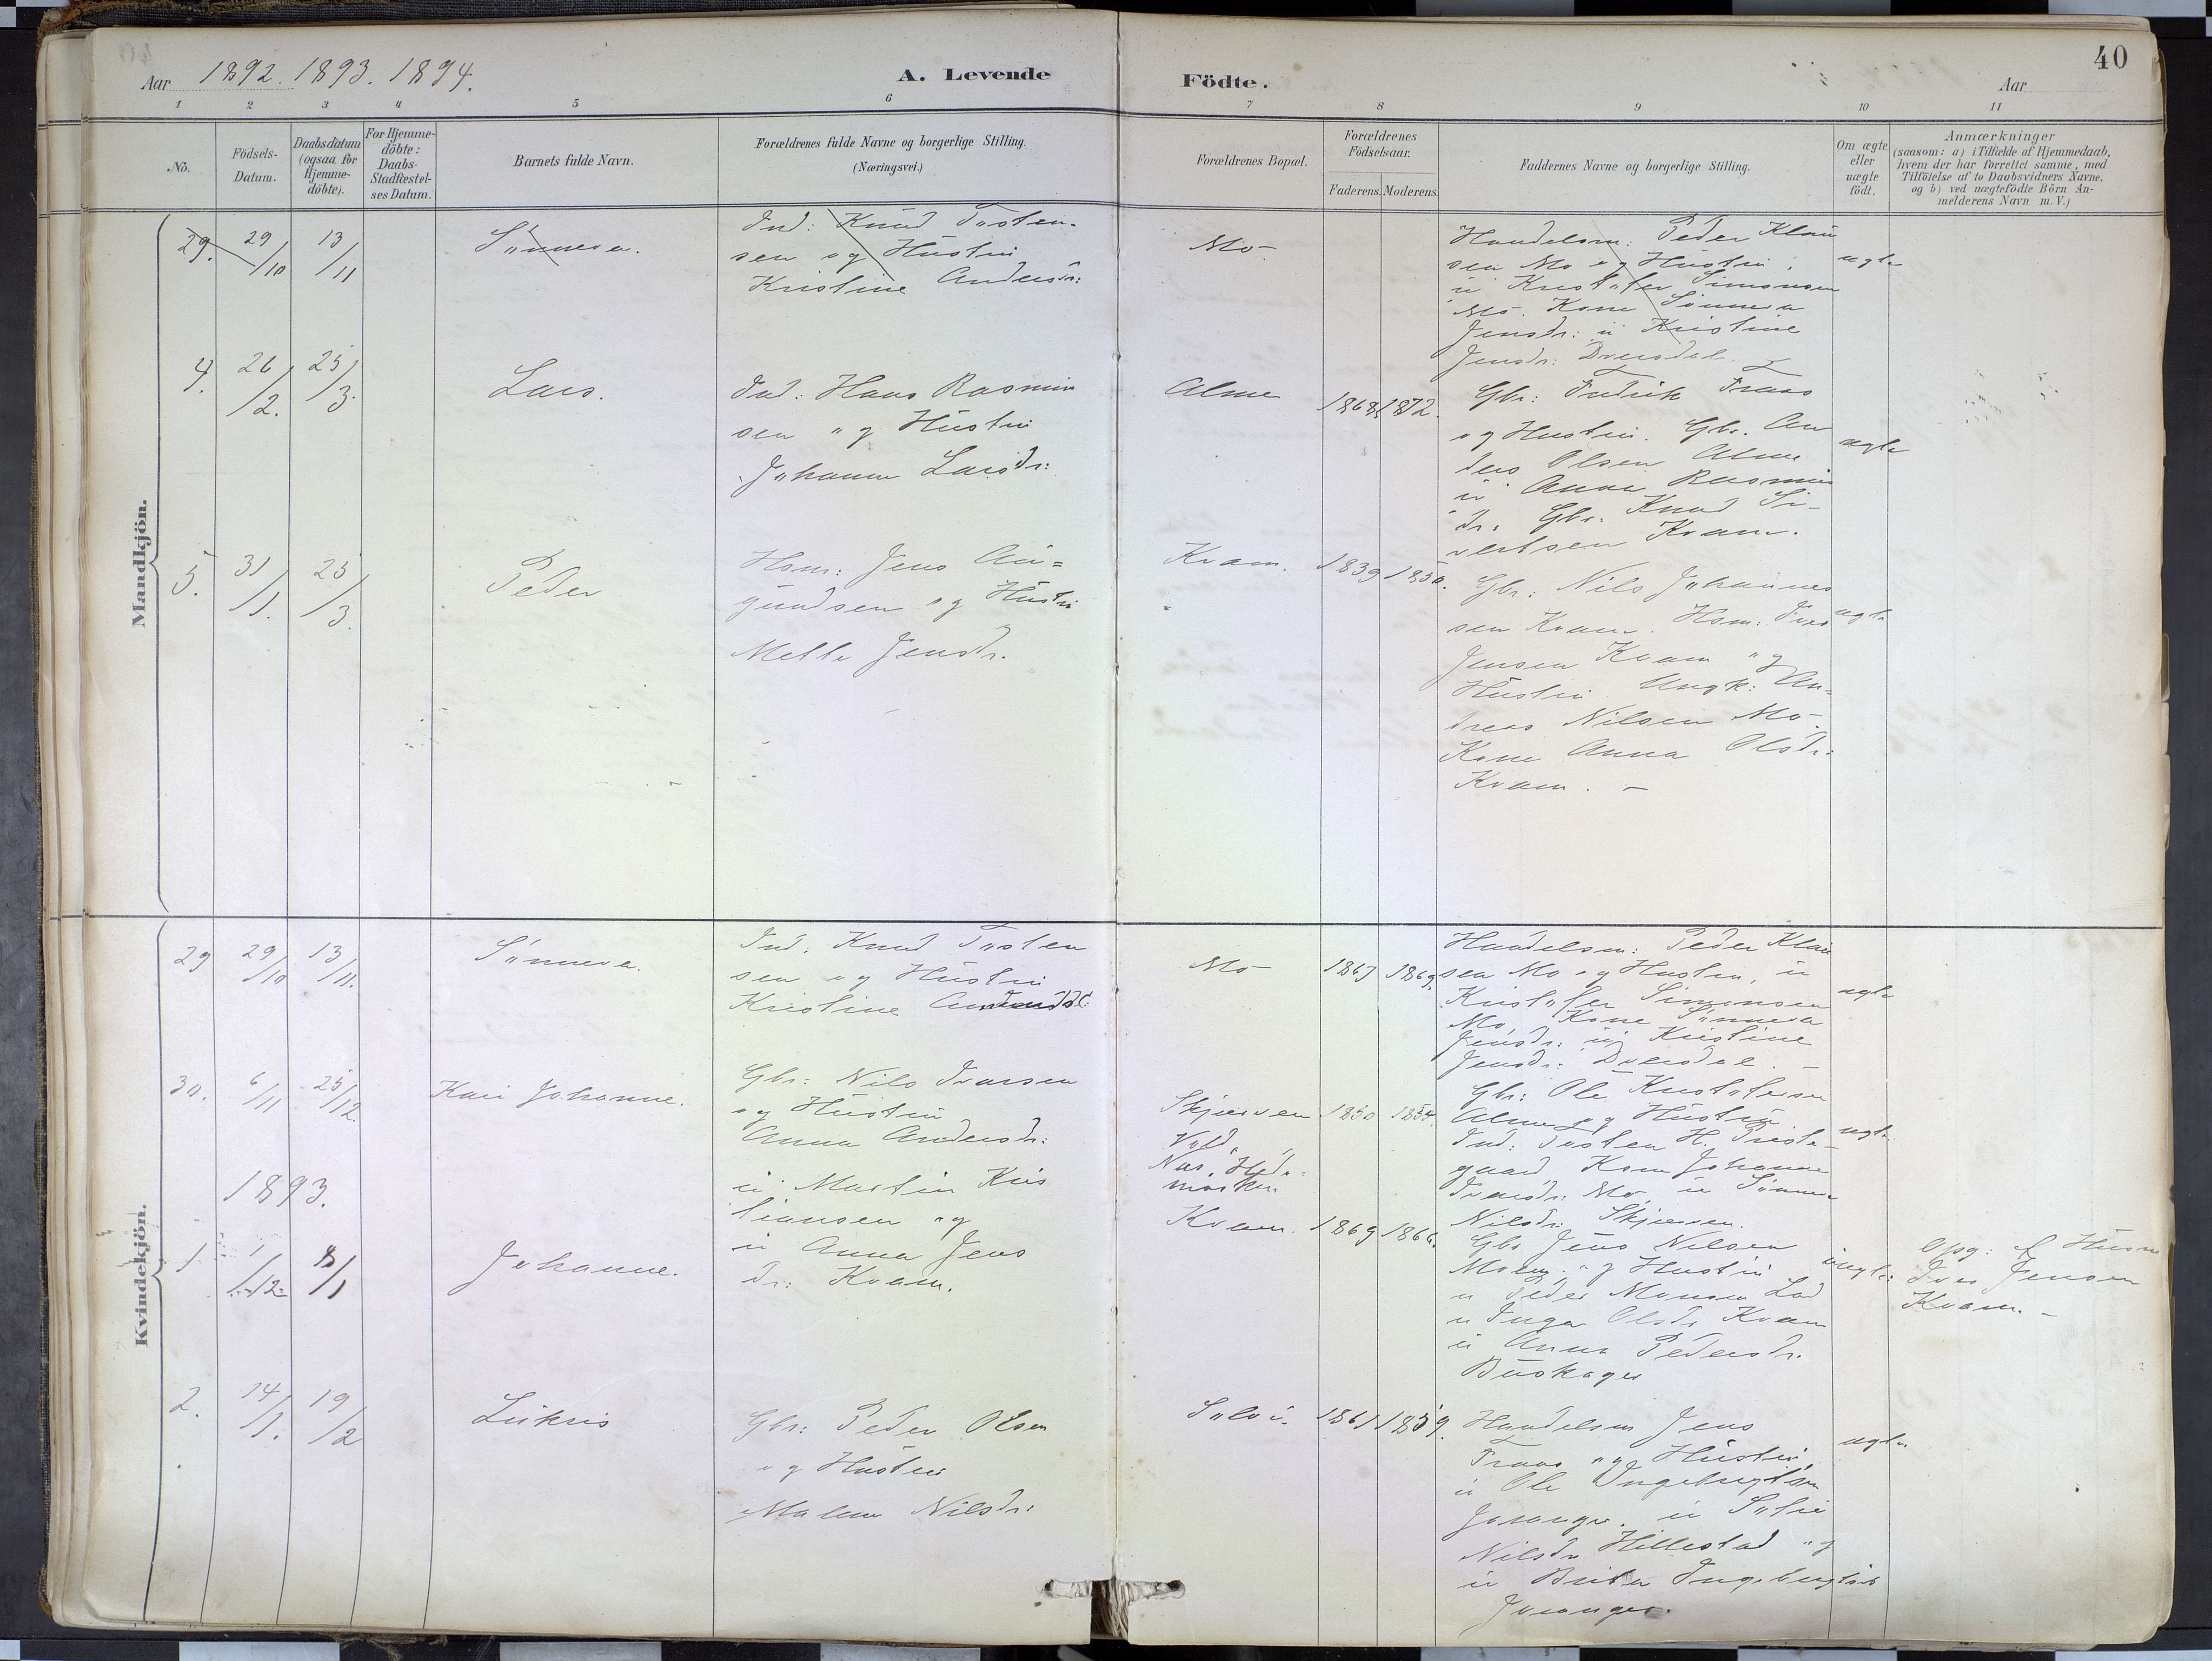 40
Aar 1892. 1893. 1894.
A. Levende Födte.
Aar
1 2 3 4 5 6 7 8 9 10 11
No.
Födsels-
Datum.
Daabsdatum
(ogsaa for
Hjemme-
döbte).
For Hjemme-
döbte:
Daabs-
Stadfæstel-
ses Datum.
Barnets fulde Navn.
Forældrenes fulde Navne og borgerlige Stilling.
(Næringsvei.)
Forældrenes Bopæl.
Forældrenes
Födselsaar.
Faderens. Moderens.
Faddernes Navne og borgerlige Stilling.
Om ægte
eller
uægte
födt.
Anmærkninger
(saasom: a) i Tilfælde af Hjemmedaab,
hvem der har forrettet samme, med
Tilföielse af to Daabsvidners Navne,
og b) ved uægtefödte Börn An-
melderens Navn m. V.)
Mandkjön.
29. 29/10 13/11
Sönneva.
Ind: Knud Tosten-
sen og Hustru
Kristine Andersdr:
Mo
Handelsm: Peder Klau
sen Mo og Hustru,
u Kristofer Simonsen
Mo. Kone Sönneva
Jensdr: u Kristine
Jensdr: Dvergsdal
ægte
4. 26/2. 25/3.
Lars.
Ind: Hans Rasmus
sen og Hustru
Johanne Larsdr:
Alme
1868. 1872.
Gbr: Fredrik Fraas
og Hustru. Gbr. An
ders Olsen Alme
u Anna Rasmus
dr: Gbr: Knud Si-
vertsen Kvam.
ægte
5. 31/1. 25/3.
Peder
Hsm: Jens Au=
gundsen og Hustru
Mette Jensdr.
Kvam.
1839 1850.
Gbr: Nils Johannes
sen Kvam. Hsm: Iver
Jensen Kvam og
Hustru. Ungk: An-
dreas Nilsen Mo.
Kone Anna Olsdr:
Kvam. -
ægte
Kvindekjön.
29 29/10 13/11.
Sönneva.
Ind. Knud Tosten
sen og Hustru
Kristine
Mo
1867 1869.
Handelsm: Peder Klau
sen Mo og Hustru, u
Kristofer Simonsen
Mo, Kone Sönneva
Jensdr: u Kristine
Jensdr: Dvergsdal. -
ægte
30. 6/11 25/12
Kari Johanne.
Gbr: Nils Ivarsen
og Hustru
Anna Andersdr:
Skjerven
Vold,
1850 1854.
Gbr: Ole Kristofersen
Alme og Hustru
Ind: Tosten H. Preste-
gaard, Kone Johanne
Ivarsdr: Mo, u Sönneva
Nilsdr: Skjerven.
ægte
1893.
1 1/12 8/1
Johanne.
u: Martin Kris
tiansen og
u Anna Jens
dr: Kvam.
Næs, Hede-
marken
Kvam.
1869 1866.
Gbr Jens Nilsen
Moen og Hustru
u Peder Monsen Lad
u Inga Olsdr Kvam
u Anna Pedersdr.
Buskager
uægte:
Opg: af Husm
Iver Jensen
Kvam. -
2. 14/1. 19/2
Lukris
Gbr: Peder Olsen
og Hustru
Malene Nilsdr:
Solvi.
1861 1859.
Handelsm Jens
Fraas og Hustru,
u Ole Ingebrigtsen
Joranger. u Sofie
Nilsdr Hillestad og
u Brita Ingebrigtsdr
Joranger.
ægte